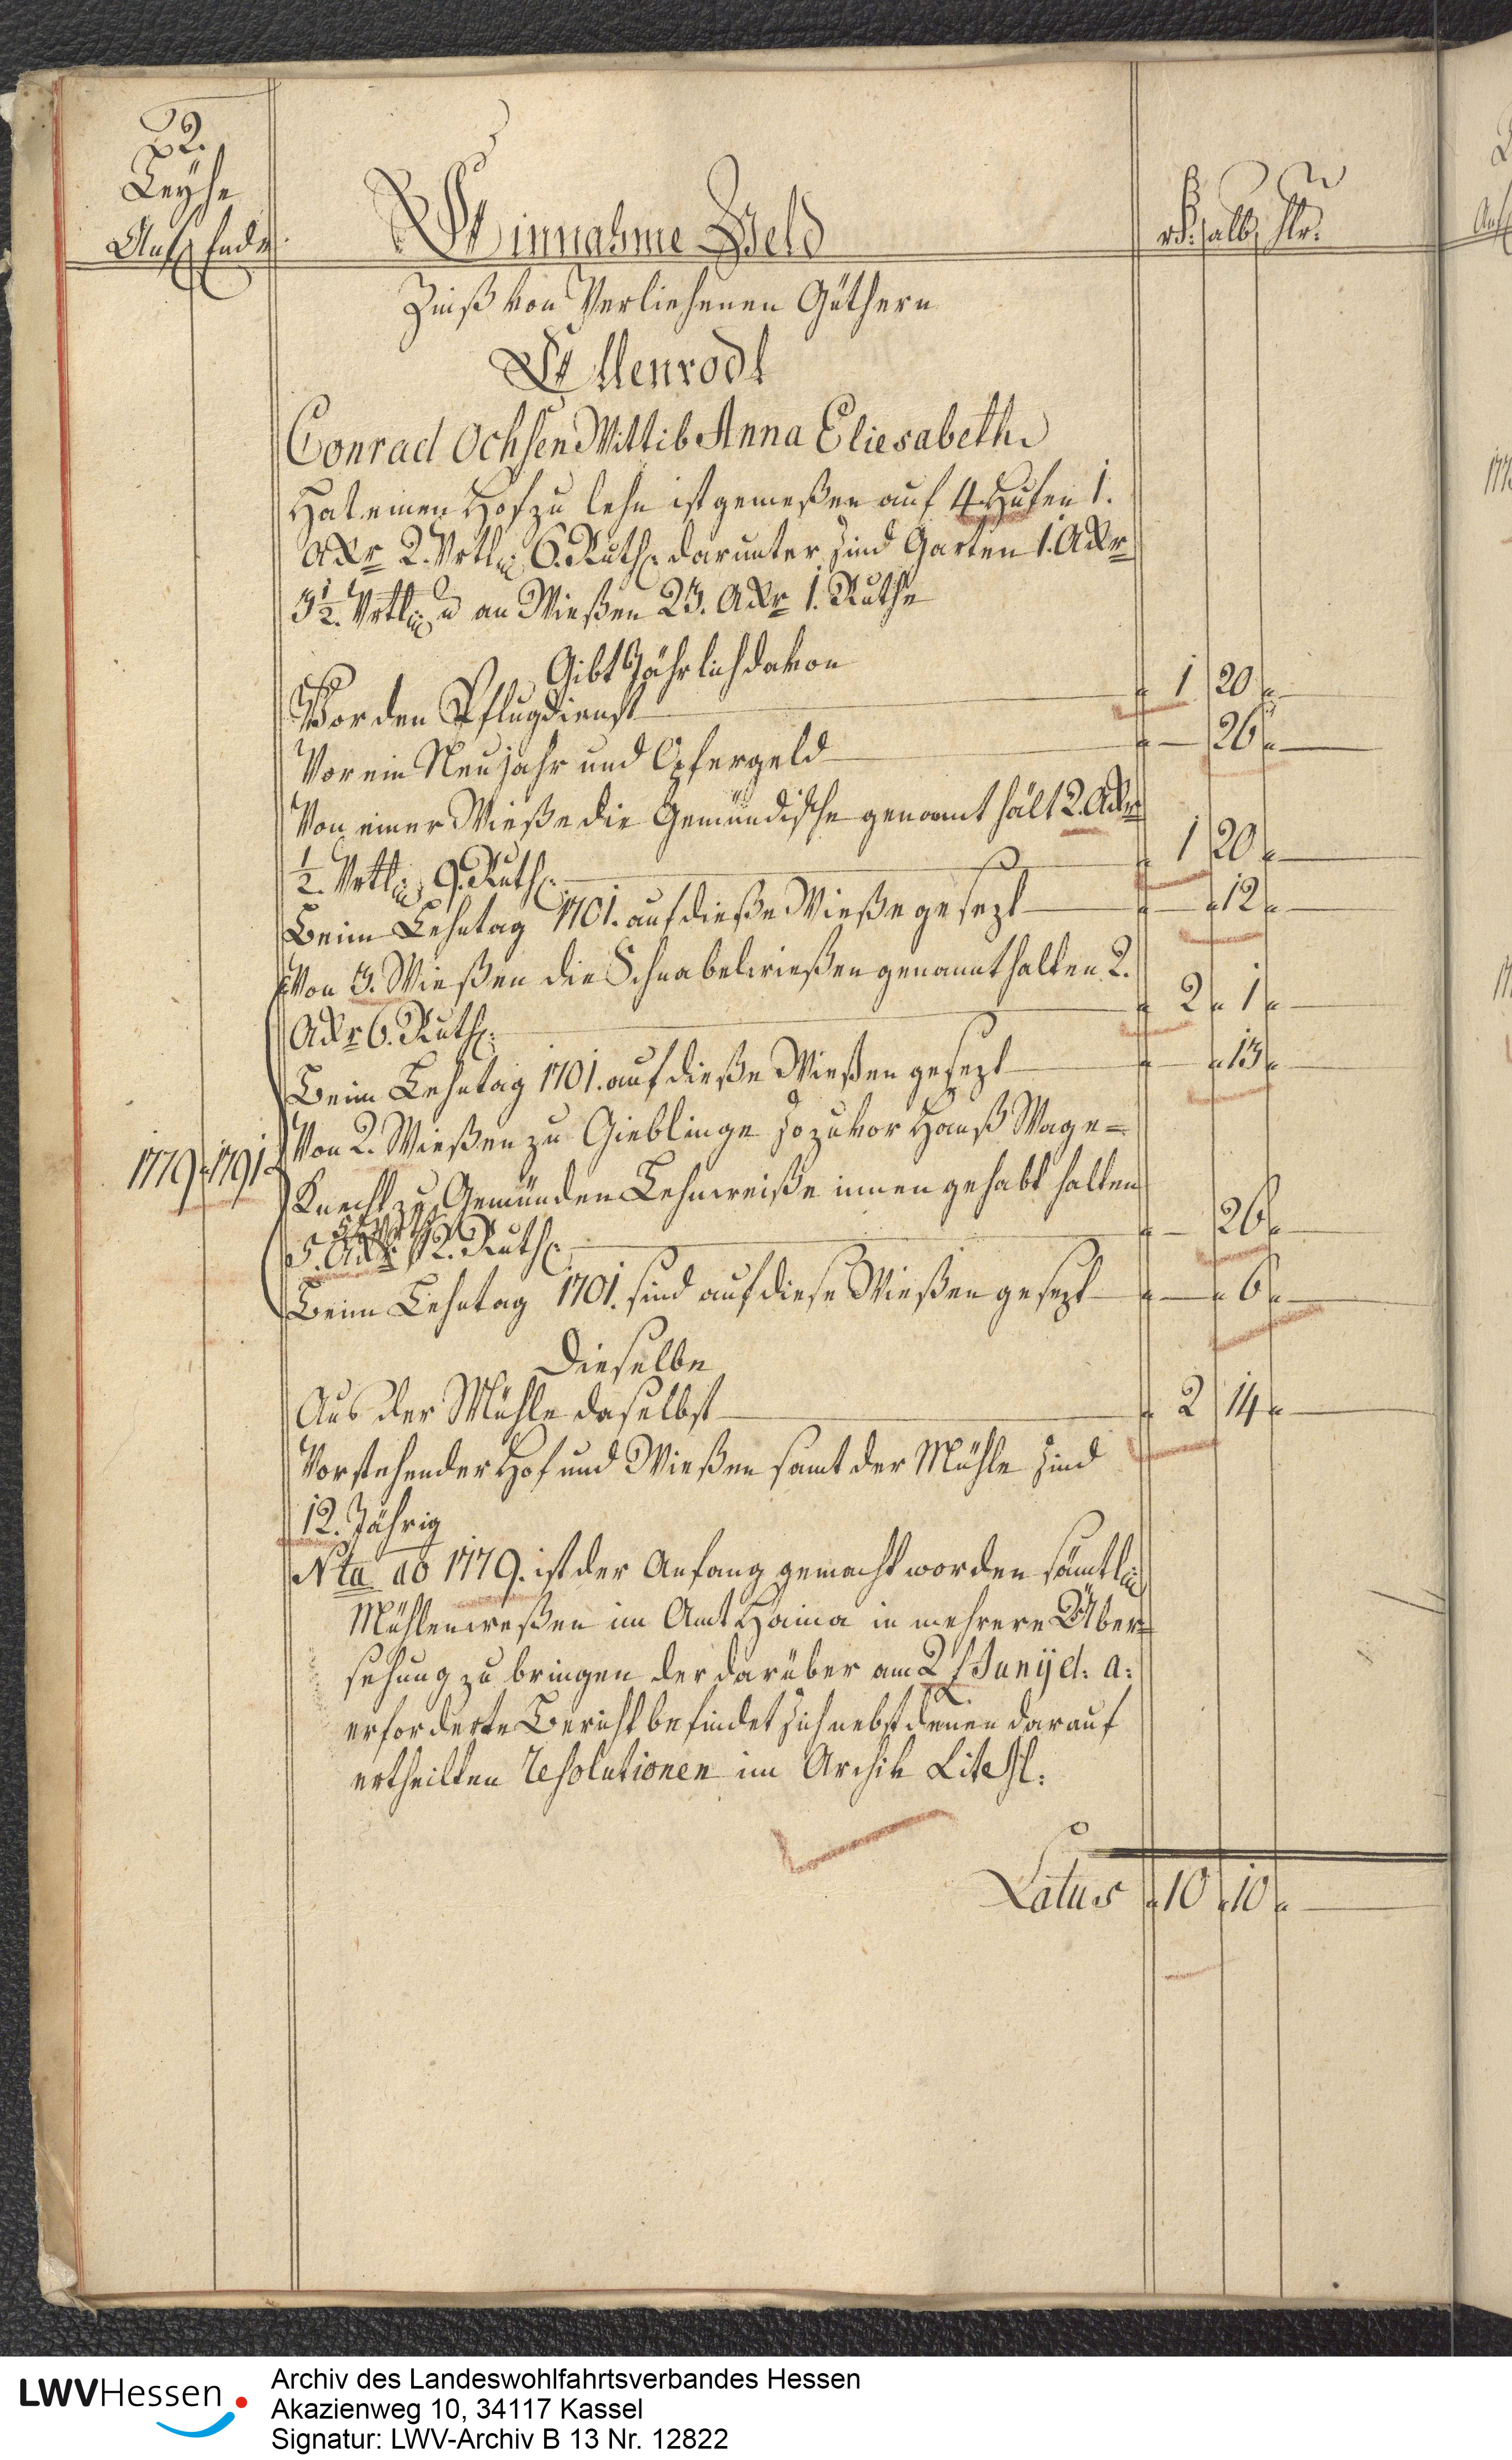 22.
Leyhe
Anf: Ende
Einnahme Geld
rt: alb: hlr:
Zinß von Verliehenen Güthern
Ellenrodt
Conrad Ochsen Wittib Anna Eliesabeth
Hat einen Hof zu lehn ist gemeßen auf 4. Hufen 1.
Akr 2. Vrtl: 6. Ruth: darunter sind Garten 1. Akr
3½. Vrtl: u an Wießen 23. Akr 1. Ruthe
Gibt Jährlich davon
Vor den Pflugdienst 1 20
Vor ein Neujahr und Opfergeld 26
Von einer Wieße die Gemündische genannt hält 2. Akr
½. Vrtl: 9. Ruth: 1 20
Beim Lehntag 1701. auf dieße Wieße gesezt 12
Von 3. Wießen die Schnabelwießen genannt halten 2.
Akr 6. Ruth: 2 1
Beim Lehntag 1701. auf dieße Wießen gesezt 13
Von 2. Wießen zu Gieblinge so zuvor Hanß Wage=
1779 1791 Knecht zu Gemünden Lehnweiße innen gehabt halten
5. Akr 12. Ruth: 26
Beim Lehntag 1701. sind auf diese Wießen gesezt 6
Dieselbe
Aus der Mühle daselbst 2 14
Vorstehender Hof und Wießen samt der Mühle sind
12. Jährig
Nta ao 1779. ist der Anfang gemacht worden sämtl:
Mühlenweßen im Amt Haina in mehrere Über=
sehung zu bringen der darüber am 2t Junij et: a:
erforderte Bericht befindet sich nebst denen darauf
ertheilten Resolutionen im Archiv
Latus 10 10
LWVHessen
Archiv des Landeswohlfahrtsverbandes Hessen
Akazienweg 10, 34117 Kassel
Signatur: LWV-Archiv B 13 Nr. 12822